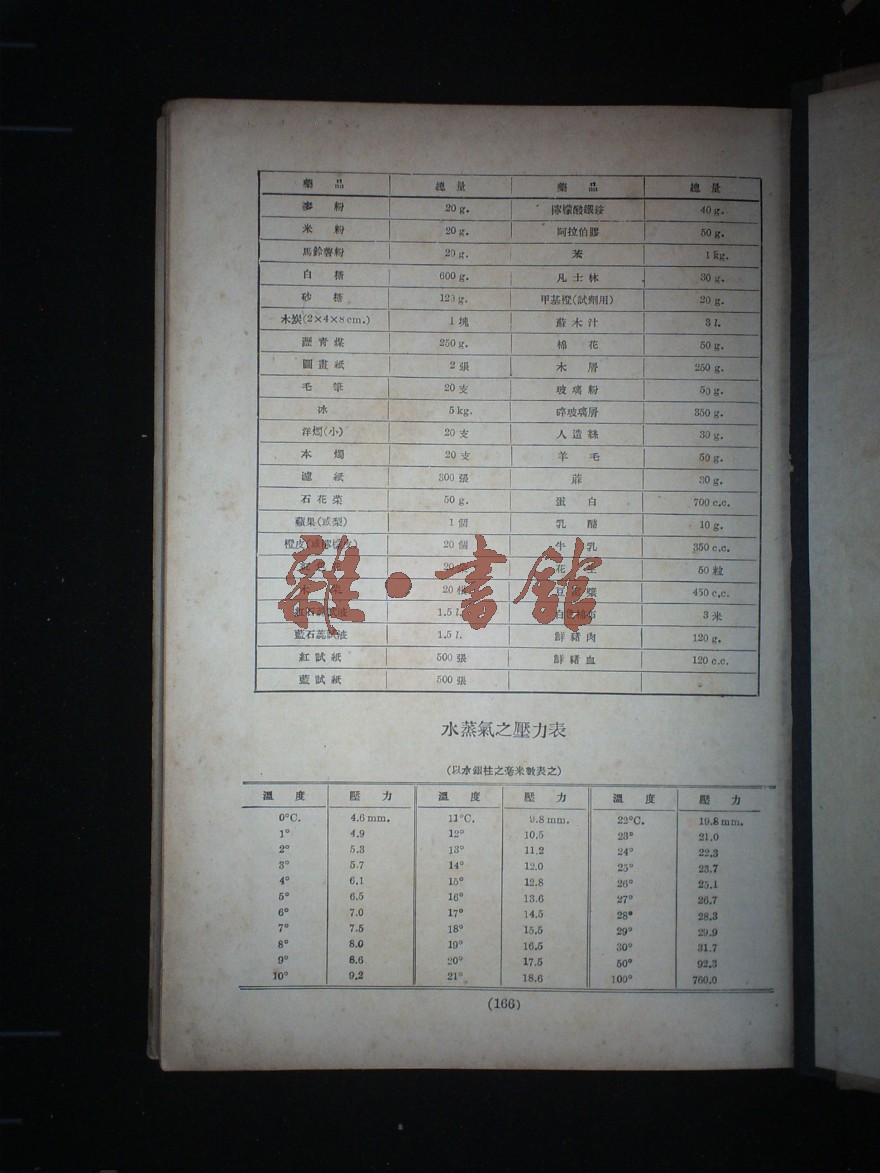 藥 品 總 量 藥 品 總 量
麥 粉 20 g. 檸檬酸鐵銨 40 g.
米 粉 20 g. 阿拉伯膠 50 g.
馬鈴薯粉 20 g. 苯 1 kg.
白 糖 600 g. 凡士林 30 g.
砂 糖 120 g. 甲基橙(試劑用) 20 g.
木炭(2×4×8cm.) 1 塊 蘇木汁 3 l.
瀝青煤 250 g. 棉 花 50 g.
圖畫紙 2 張 木 屑 250 g.
毛 筆 20 支 玻璃粉 50 g.
冰 5 kg. 碎玻璃屑 350 g.
洋燭(小) 20 支 人造絲 30 g.
本 燭 20 支 羊 毛 50 g.
濾 紙 300 張 蔴 30 g.
石花菜 50 g. 蛋 白 700 c.c.
蘋果(或梨) 1 個 乳 醣 10 g.
橙皮(或檸檬皮) 20 個 牛 乳 350 c.c.
20 花 50 粒
木 20 根 豆 漿 450 c.c.
紅石蕊試液 1.5 l. 白 布 3 米
藍石蕊試液 1.5 l. 鮮豬肉 120 g.
紅試紙 500 張 鮮豬血 120 c.c.
藍試紙 500 張
雜·書館
水蒸氣之壓力表
(以水銀柱之毫米數表之)
溫 度 壓 力 溫 度 壓 力 溫 度 壓 力
0°C. 4.6 mm. 11°C. 9.8 mm. 22°C. 19.8 mm.
1° 4.9 12° 10.5 23° 21.0
2° 5.3 13° 11.2 24° 22.3
3° 5.7 14° 12.0 25° 23.7
4° 6.1 15° 12.8 26° 25.1
5° 6.5 16° 13.6 27° 26.7
6° 7.0 17° 14.5 28° 28.3
7° 7.5 18° 15.5 29° 29.9
8° 8.0 19° 16.5 30° 31.7
9° 8.6 20° 17.5 50° 92.3
10° 9.2 21° 18.6 100° 760.0
(166)